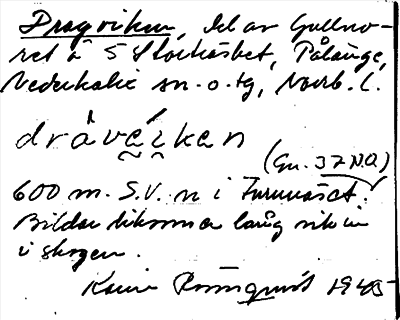 Dragviken, del av Gullno-
ret å S Storträsket, Pålänge,
Nederkalix sn. o. tg, Norrb. l.
dråvæ̀ikan
(Gu. 37 N.O.)
600 m. S.V. n i Furunäset.
Bildar liksom en lång vik in
i skogen.
Karin 1945